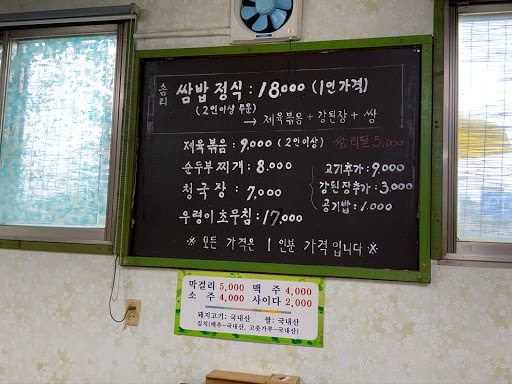 소리 쌈밥 정식 : 18000 (1인가격)
(2인이상 주문)
→ 제육볶음 + 강된장 + 쌈
제육볶음 : 9,000 (2인이상) 쌈 리필 5,000
순두부 찌개 : 8.000
청국장 : 7,000
우렁이 초무침 : 17,000
고기추가 : 9,000
강된장추가 : 3,000
공기밥 : 1.000
※ 모든 가격은 1인분 가격입니다 ※
막걸리 5,000 맥 주 4,000
소 주 4,000 사이다 2,000
돼지고기: 국내산 쌀: 국내산
김치(배추-국내산, 고춧가루-국내산)